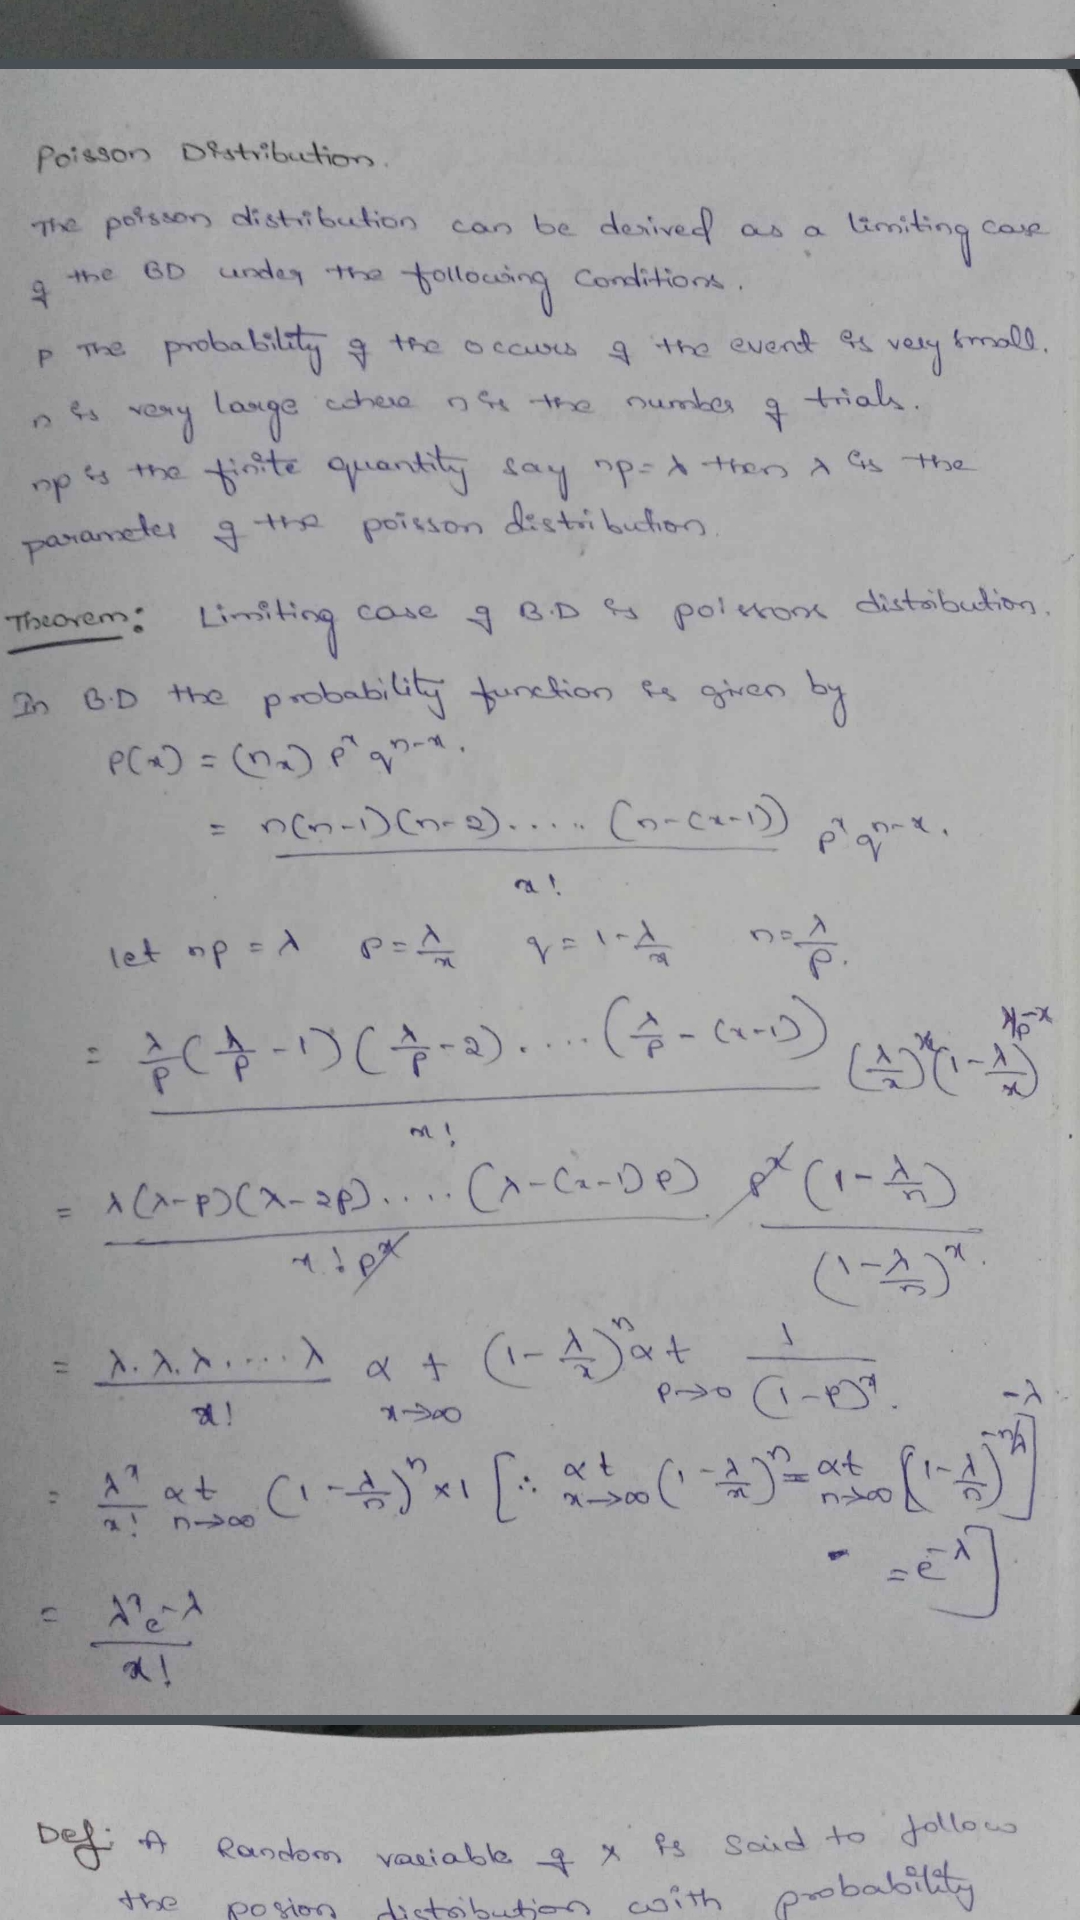 Poisson Distribution.
The poisson distribution can be derived as a limiting case
of the BD under the following Conditions.
P The probability of the occurs of the event is very small.
n is very large where n is the number of trials.
np is the finite quantity say np = λ then λ is the
parameter of the poisson distribution.
Theorem: Limiting case of B.D is poissons distribution.
In B.D the probability function is given by
P(x) = (nx) p^x q^{n-x}.
= n(n-1)(n-2)..... (n-(x-1)) / x! p^x q^{n-x}.
let np = λ p = λ/x q = 1-λ/x n = λ/p.
= λ/p (λ/p -1)(λ/p -2)..... (λ/p -(x-1)) / x! (λ/x)^x (1-λ/x)^{λ/p-x}
= λ(λ-p)(λ-2p)..... (λ-(x-1)p) / x! p^x p^x (1-λ/n) / (1-λ/n)^x.
= λ.λ.λ.....λ / x! αt x→∞ (1-λ/x)^n αt p→0 1/(1-p)^x.
= λ^x/x! αt n→∞ (1-λ/n)^n ×1 [∵ αt x→∞ (1-λ/x)^n = αt n→∞ [(1-λ/n)^{-n/λ}]^{-λ}
= e^{-λ}]
= λ^x e^{-λ} / x!
Def: A Random variable of x is said to follow
the posion distribution with probability